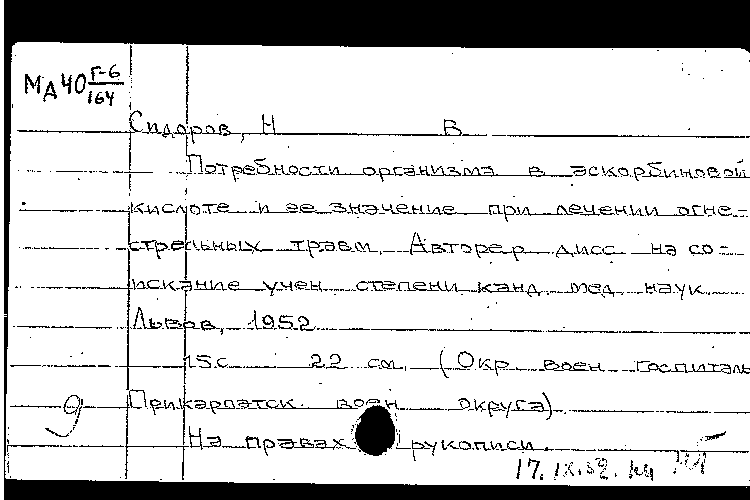 МД40 Г-6
164
Сидоров, Н В
Потребности организма в аскорбиновой
кислоте и ее значение при лечении огне-
стрельных травм. Автореф дисс на со-
искание учен степени канд. мед наук
Львов, 1952
15с 22 см. (Окр воен госпиталь
Прикарпатск. воен округа)
9
На правах рукописи.
17.IX.52.